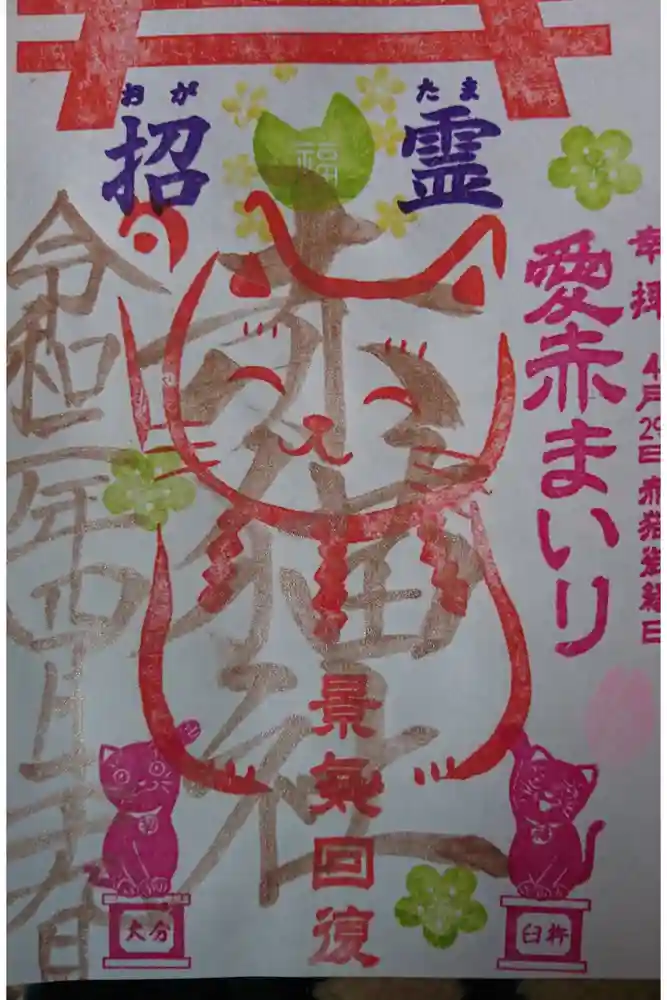 おが たま
招 霊
福
幸拝 4月29日 赤猫御縁日
愛赤まいり
赤猫社
令和二年四月
景氣回復
大分
臼杵